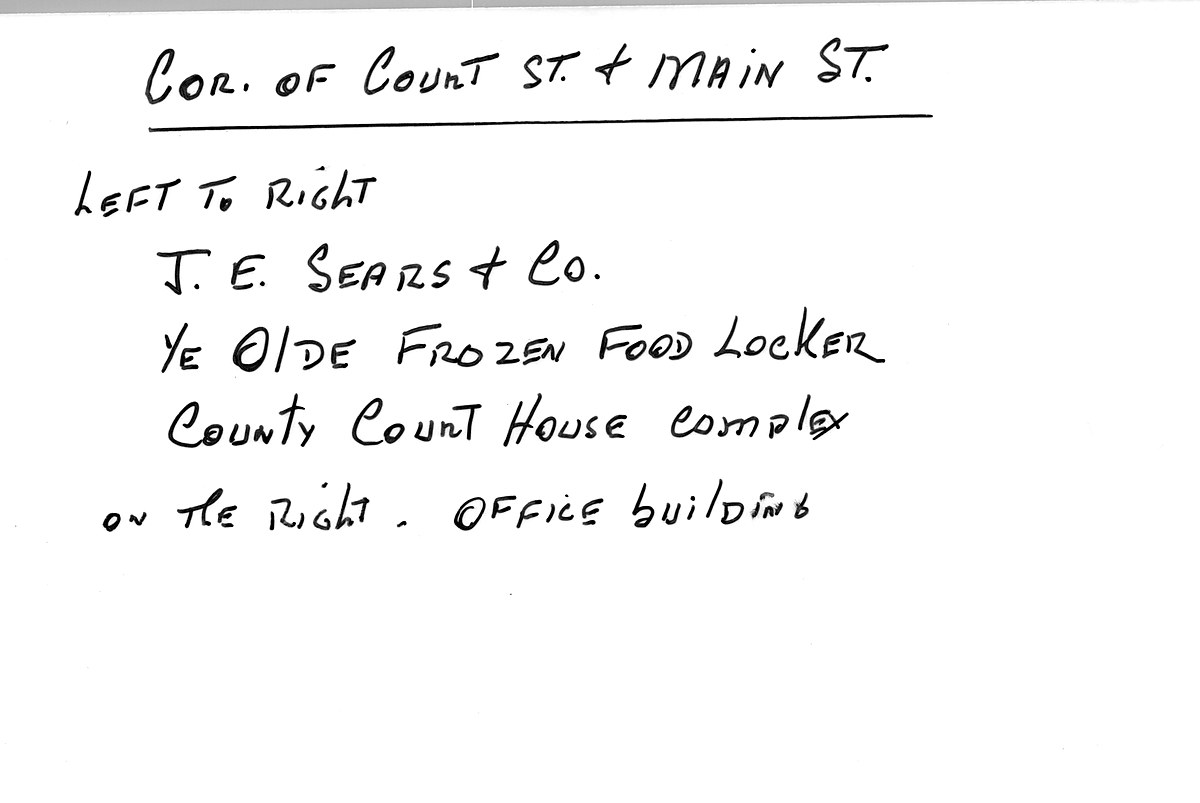 COR. OF COURT ST. & MAIN ST.
LEFT TO RIGHT
J. E. SEARS & CO.
YE OLDE FROZEN FOOD LOCKER
COUNTY COURT HOUSE COMPLEX
ON THE RIGHT. OFFICE BUILDING